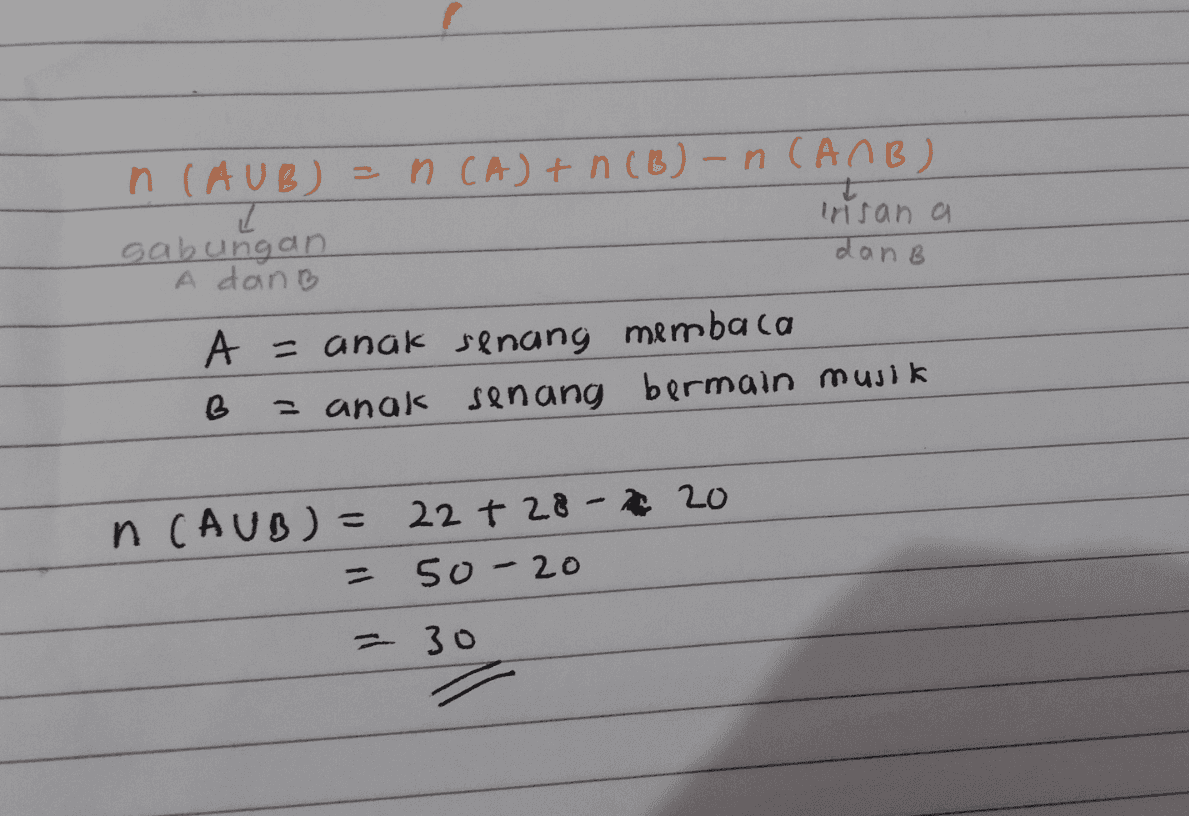 n (A∪B) = n (A) + n (B) – n (A∩B)
↓ ↓
gabungan irisan a
A dan B dan B
A = anak senang membaca
B = anak senang bermain musik
n (A∪B) = 22 + 28 - 20
= 50 - 20
= 30